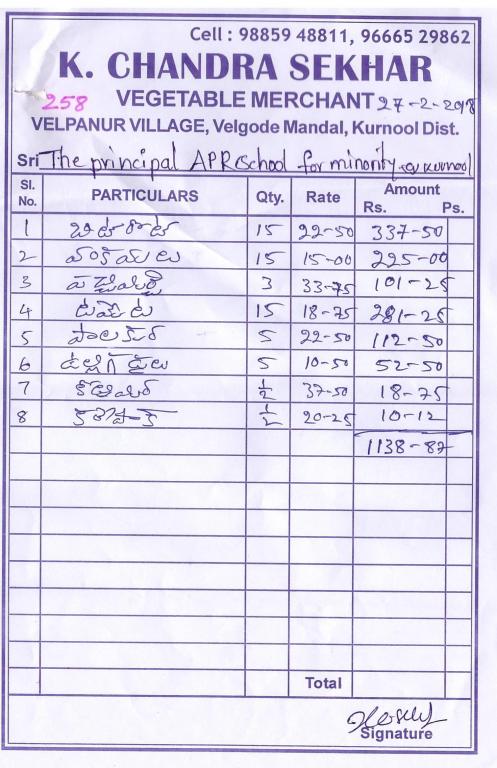 Cell : 98859 48811, 96665 29862
K. CHANDRA SEKHAR
258 VEGETABLE MERCHANT 27-2-2018
VELPANUR VILLAGE, Velgode Mandal, Kurnool Dist.
Sri The principal APR School for minority Kurnool
Sl. No. PARTICULARS Qty. Rate Amount Rs. Ps.
1 బీట్రూట్ 15 22-50 337-50
2 వంకాయలు 15 15-00 225-00
3 పచ్చిమిర్చి 3 33-75 101-25
4 టమేట 15 18-75 281-25
5 పాలకూర 5 22-50 112-50
6 ఉల్లిగడ్డలు 5 10-50 52-50
7 కొతిమీర ½ 37-50 18-75
8 కరేపాక్ ½ 20-25 10-12
1138-87
Total
Signature